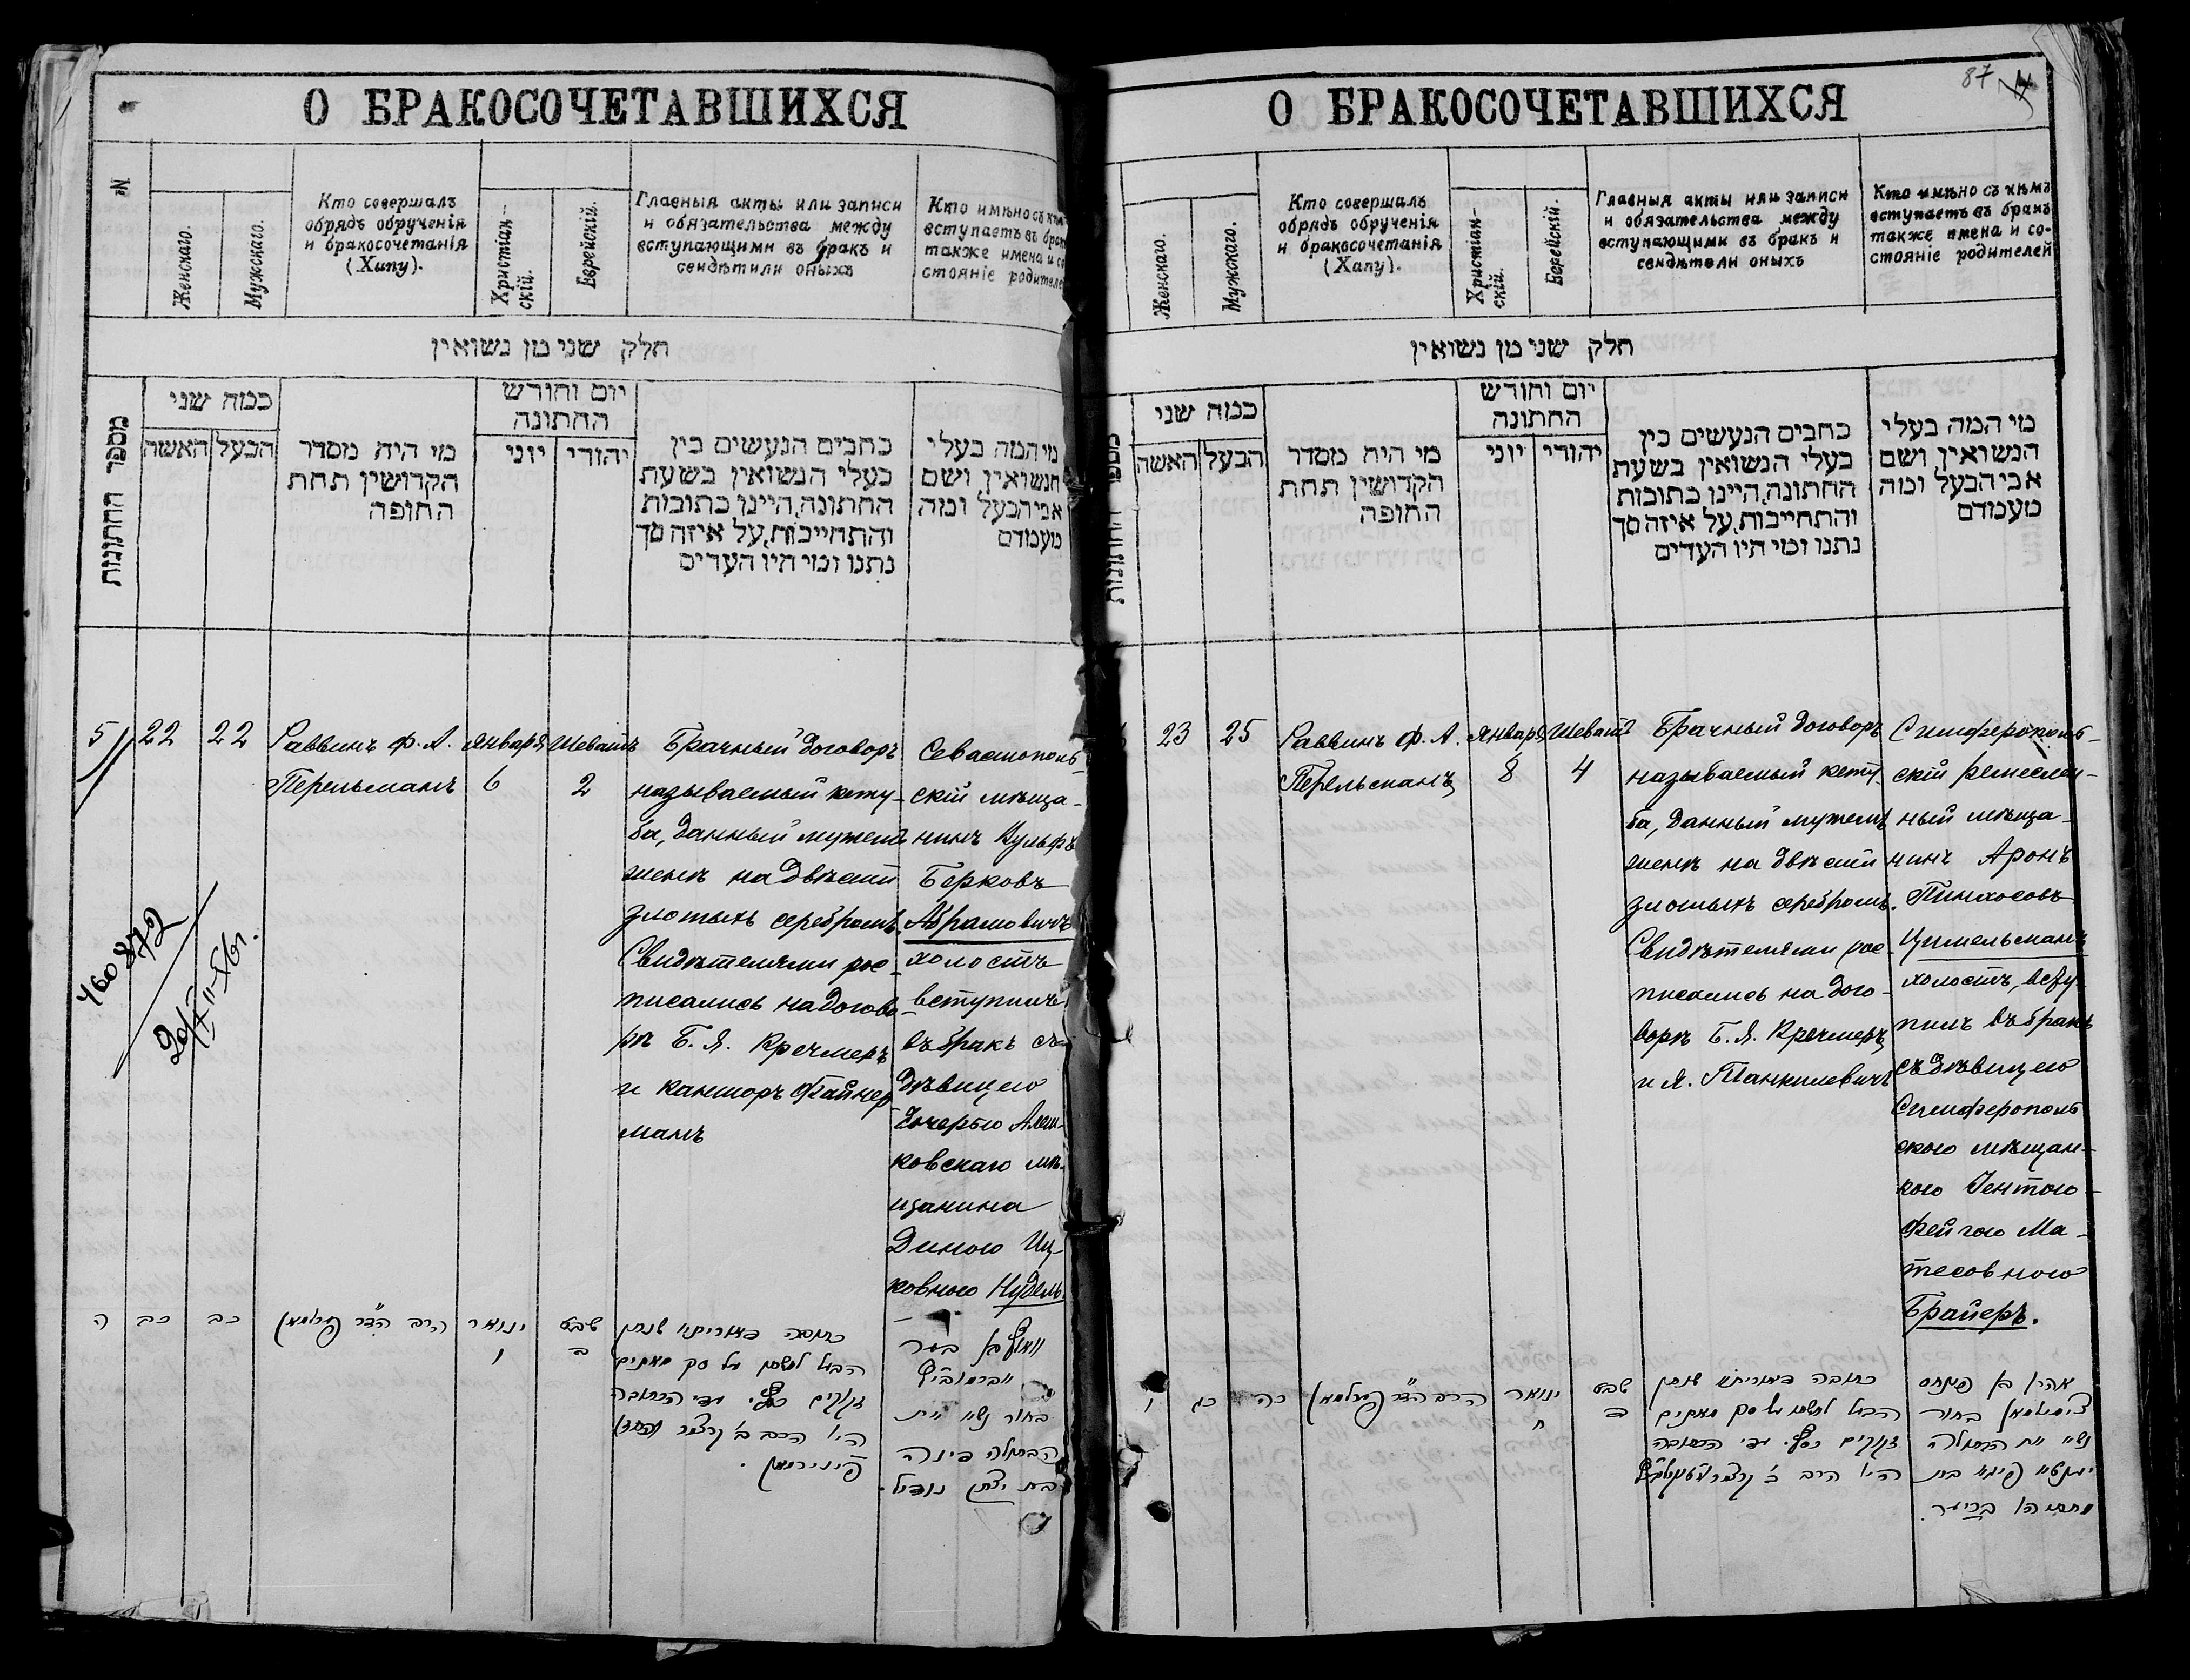 О БРАКОСОЧЕТАВШИХСЯ
№
Женскаго.
Мужскаго.
Кто совершалъ
обрядъ обрученія
и бракосочетанія
(Хипу).
Христіан-
скій.
Еврейскій.
Главныя акты или записи
и обязательства между
вступающими въ бракъ и
свидѣтили оныхъ
Кто имѣно съ кѣмъ
вступаетъ въ бракъ
также имена и со-
стояніе родителей
חלק שני מן נשואין
מספר החתונות
כמה שני
האשה
הבעל
מי היה מסדר
הקדושין תחת
החופה
יום וחודש
החתונה
יוני
יהודי
כתבים הנעשים בין
בעלי הנשואין בשעת
החתונה, היינו כתובות
והתחייבות, על איזה סך
נתנו ומי היו העדים
מי המה בעלי
הנשואין ושם
אבי הבעל ומה
מעמדם
5
22
22
Раввинъ Ф. А.
Перельманъ
Января
6
Шеватъ
2
Брачный договоръ
называемый кету-
ба, данный мужемъ
женѣ на двѣсти
злотыхъ серебромъ.
Свидѣтелями рос-
писались на догово-
рѣ Б. Я. Кречмеръ
и канторъ Файнер
манъ
Севастополь-
скій мѣща-
нинъ Вульфъ
Берковъ
Абрамовичъ
холостъ
вступилъ
въ бракъ съ
дѣвицею
дочерью Алеш-
ковскаго мѣ-
щанина
Диною Иц-
ковною Нудель
460 872
ה
כב
כב
הרב הדר פערלמאן
ינואר
ו
שבט
ב
כתובה דאורייתא שנתן
הבעל לאשתו על סך מאתים
זקוקים כסף. ועדי הכתובה
היו הרב ב' קרעצמר והחזן
פיינירמאן.
וואלף בן בער
אברמוביץ
בחור נשא את
הבתולה דינה
בת יצחק נודיל.
87
О БРАКОСОЧЕТАВШИХСЯ
Женскаго.
Мужскаго.
Кто совершалъ
обрядъ обрученія
и бракосочетанія
(Хапу).
Христіан-
скій.
Еврейскій.
Главныя акты или записи
и обязательства между
вступающими въ бракъ и
свидѣтели оныхъ
Кто имѣно съ кѣмъ
вступаетъ въ бракъ
также имена и со-
стояніе родителей
חלק שני מן נשואין
כמה שני
האשה
הבעל
מי היה מסדר
הקדושין תחת
החופה
יום וחודש
החתונה
יוני
יהודי
כתבים הנעשים בין
בעלי הנשואין בשעת
החתונה, היינו כתובות
והתחייבות, על איזה סך
נתנו ומי היו העדים
מי המה בעלי
הנשואין ושם
אבי הבעל ומה
מעמדם
23
25
Раввинъ Ф. А.
Перельманъ
Января
8
Шеватъ
4
Брачный договоръ
называемый кету-
ба, данный мужемъ
женѣ на двѣсти
злотыхъ серебромъ.
Свидѣтелями рос-
писались на дого-
ворѣ Б. Я. Кречмеръ
и Я. Танкилевичъ
Симферополь-
скій ремеслен-
ный мѣща-
нинъ Аронъ
Пинхосовъ
Цимельманъ
холостъ, всту-
пилъ въ бракъ
съ дѣвицею
Симферополь
скою мѣщан-
кою Ентою-
Фейгою Ма-
тесовною
Брайеръ.
ו
כג
כה
הרב הדר פערלמאן
ינואר
ח
שבט
ד
כתובה דאורייתא שנתן
הבעל לאשתו על סך מאתים
זקוקים כסף. ועדי הכתובה
היו הרב ב' קרעצמר
אהרן בן פינחס
צימילמאן בחור
נשא את הבתולה
יענטא פייגא בת
מתתיהו ברייער.